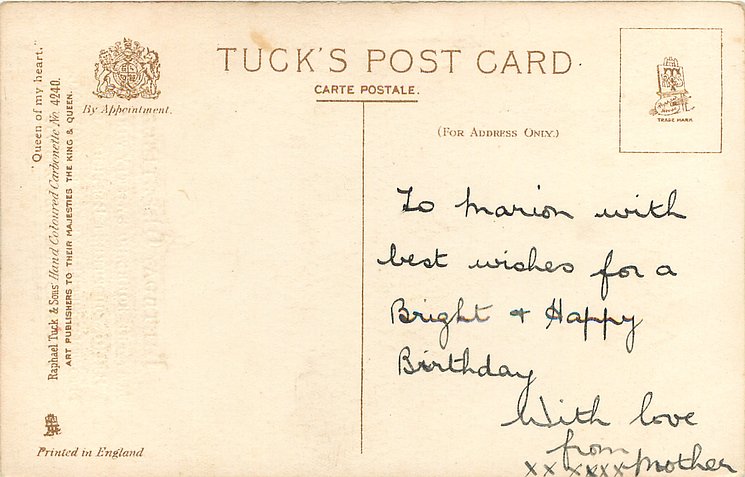 "Queen of my heart."
Raphael Tuck & Sons' Hand Coloured Carbonette No. 4240.
ART PUBLISHERS TO THEIR MAJESTIES THE KING & QUEEN.
By Appointment.
TUCK'S POST CARD
CARTE POSTALE.
(FOR ADDRESS ONLY.)
TRADE MARK
To Marion with
best wishes for a
Bright & Happy
Birthday
With love
from
xx xxxx Mother
Printed in England